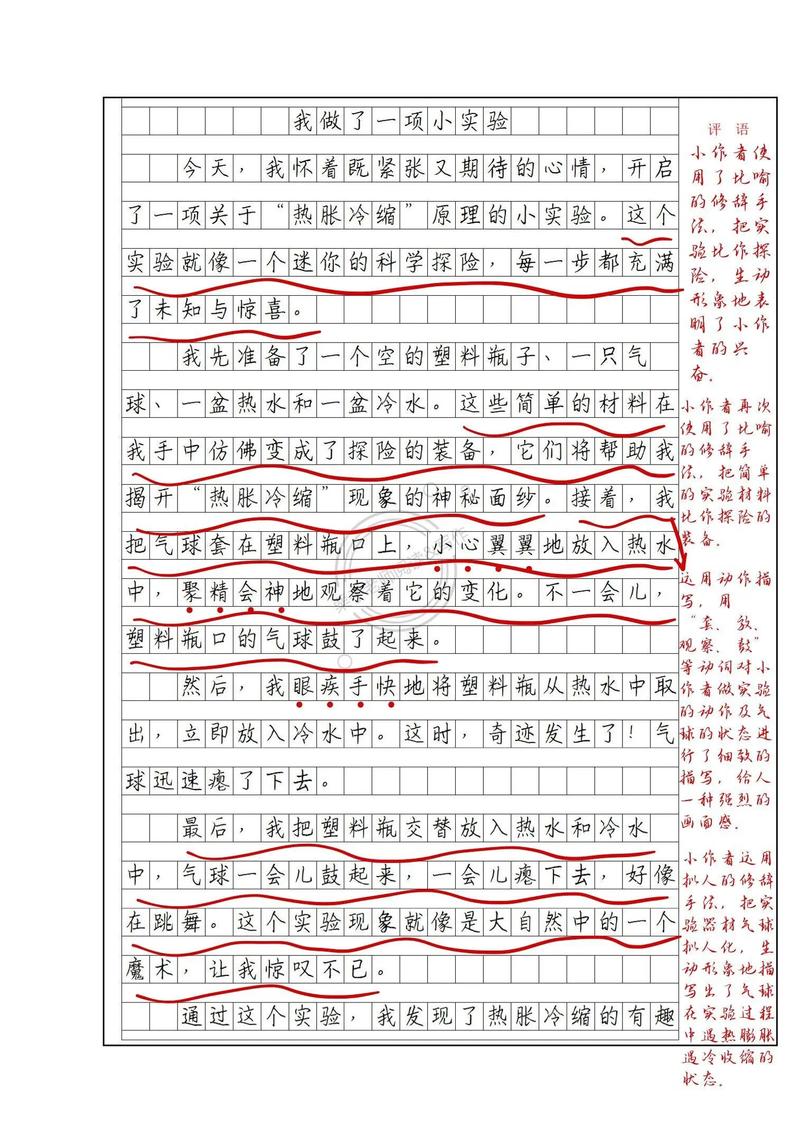 我做了一项小实验
今天，我怀着既紧张又期待的心情，开启
了一项关于“热胀冷缩”原理的小实验。这个
实验就像一个迷你的科学探险，每一步都充满
了未知与惊喜。
我先准备了一个空的塑料瓶子、一只气
球、一盆热水和一盆冷水。这些简单的材料在
我手中仿佛变成了探险的装备，它们将帮助我
揭开“热胀冷缩”现象的神秘面纱。接着，我
把气球套在塑料瓶口上，小心翼翼地放入热水
中，聚精会神地观察着它的变化。不一会儿，
塑料瓶口的气球鼓了起来。
然后，我眼疾手快地将塑料瓶从热水中取
出，立即放入冷水中。这时，奇迹发生了！气
球迅速瘪了下去。
最后，我把塑料瓶交替放入热水和冷水
中，气球一会儿鼓起来，一会儿瘪下去，好像
在跳舞。这个实验现象就像是大自然中的一个
魔术，让我惊叹不已。
通过这个实验，我发现了热胀冷缩的有趣
评语
小作者使
用了比喻
的修辞手
法，把实
验比作探
险，生动
形象地表
明了小作
者的兴
奋.
小作者再次
使用了比喻
的修辞手
法，把简单
的实验材料
比作探险的
装备.
运用动作描
写，用
“套、放、
观察、鼓”
等动词对小
作者做实验
的动作及气
球的状态进
行了细致的
描写，给人
一种强烈的
画面感.
小作者运用
拟人的修辞
手法，把实
验器材气球
拟人化，生
动形象地描
写出了气球
在实验过程
中遇热膨胀
遇冷收缩的
状态.